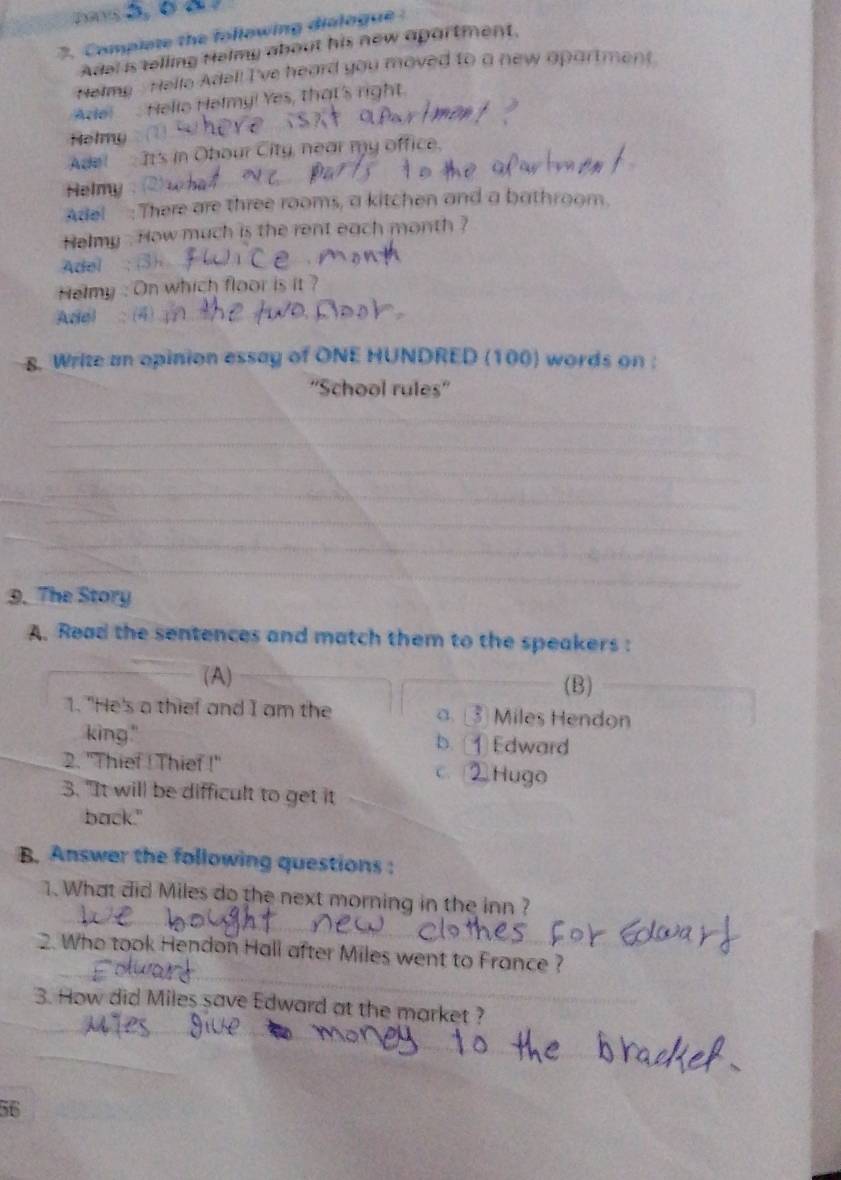 DAYS 5, 6 & 7
7. Complete the following dialogue :
Adel is telling Helmy about his new apartment.
Helmy : Hello Adel! I've heard you moved to a new apartment.
Adel : Hello Helmy! Yes, that's right.
Helmy : (1) where isit apartment ?
Adel : It's in Obour City, near my office.
Helmy : (2) what are parts to the apartment.
Adel : There are three rooms, a kitchen and a bathroom.
Helmy : How much is the rent each month ?
Adel : (3) twice month
Helmy : On which floor is it ?
Adel : (4) in the two floor.
8. Write an opinion essay of ONE HUNDRED (100) words on :
"School rules"
9. The Story
A. Read the sentences and match them to the speakers :
(A) (B)
1. "He's a thief and I am the a. [3] Miles Hendon
king." b. [1] Edward
2. "Thief ! Thief !" c. [2] Hugo
3. "It will be difficult to get it
back."
B. Answer the following questions :
1. What did Miles do the next morning in the inn ?
We bought new clothes for Edward
2. Who took Hendon Hall after Miles went to France ?
Edward
3. How did Miles save Edward at the market ?
give money to the bracket.
56